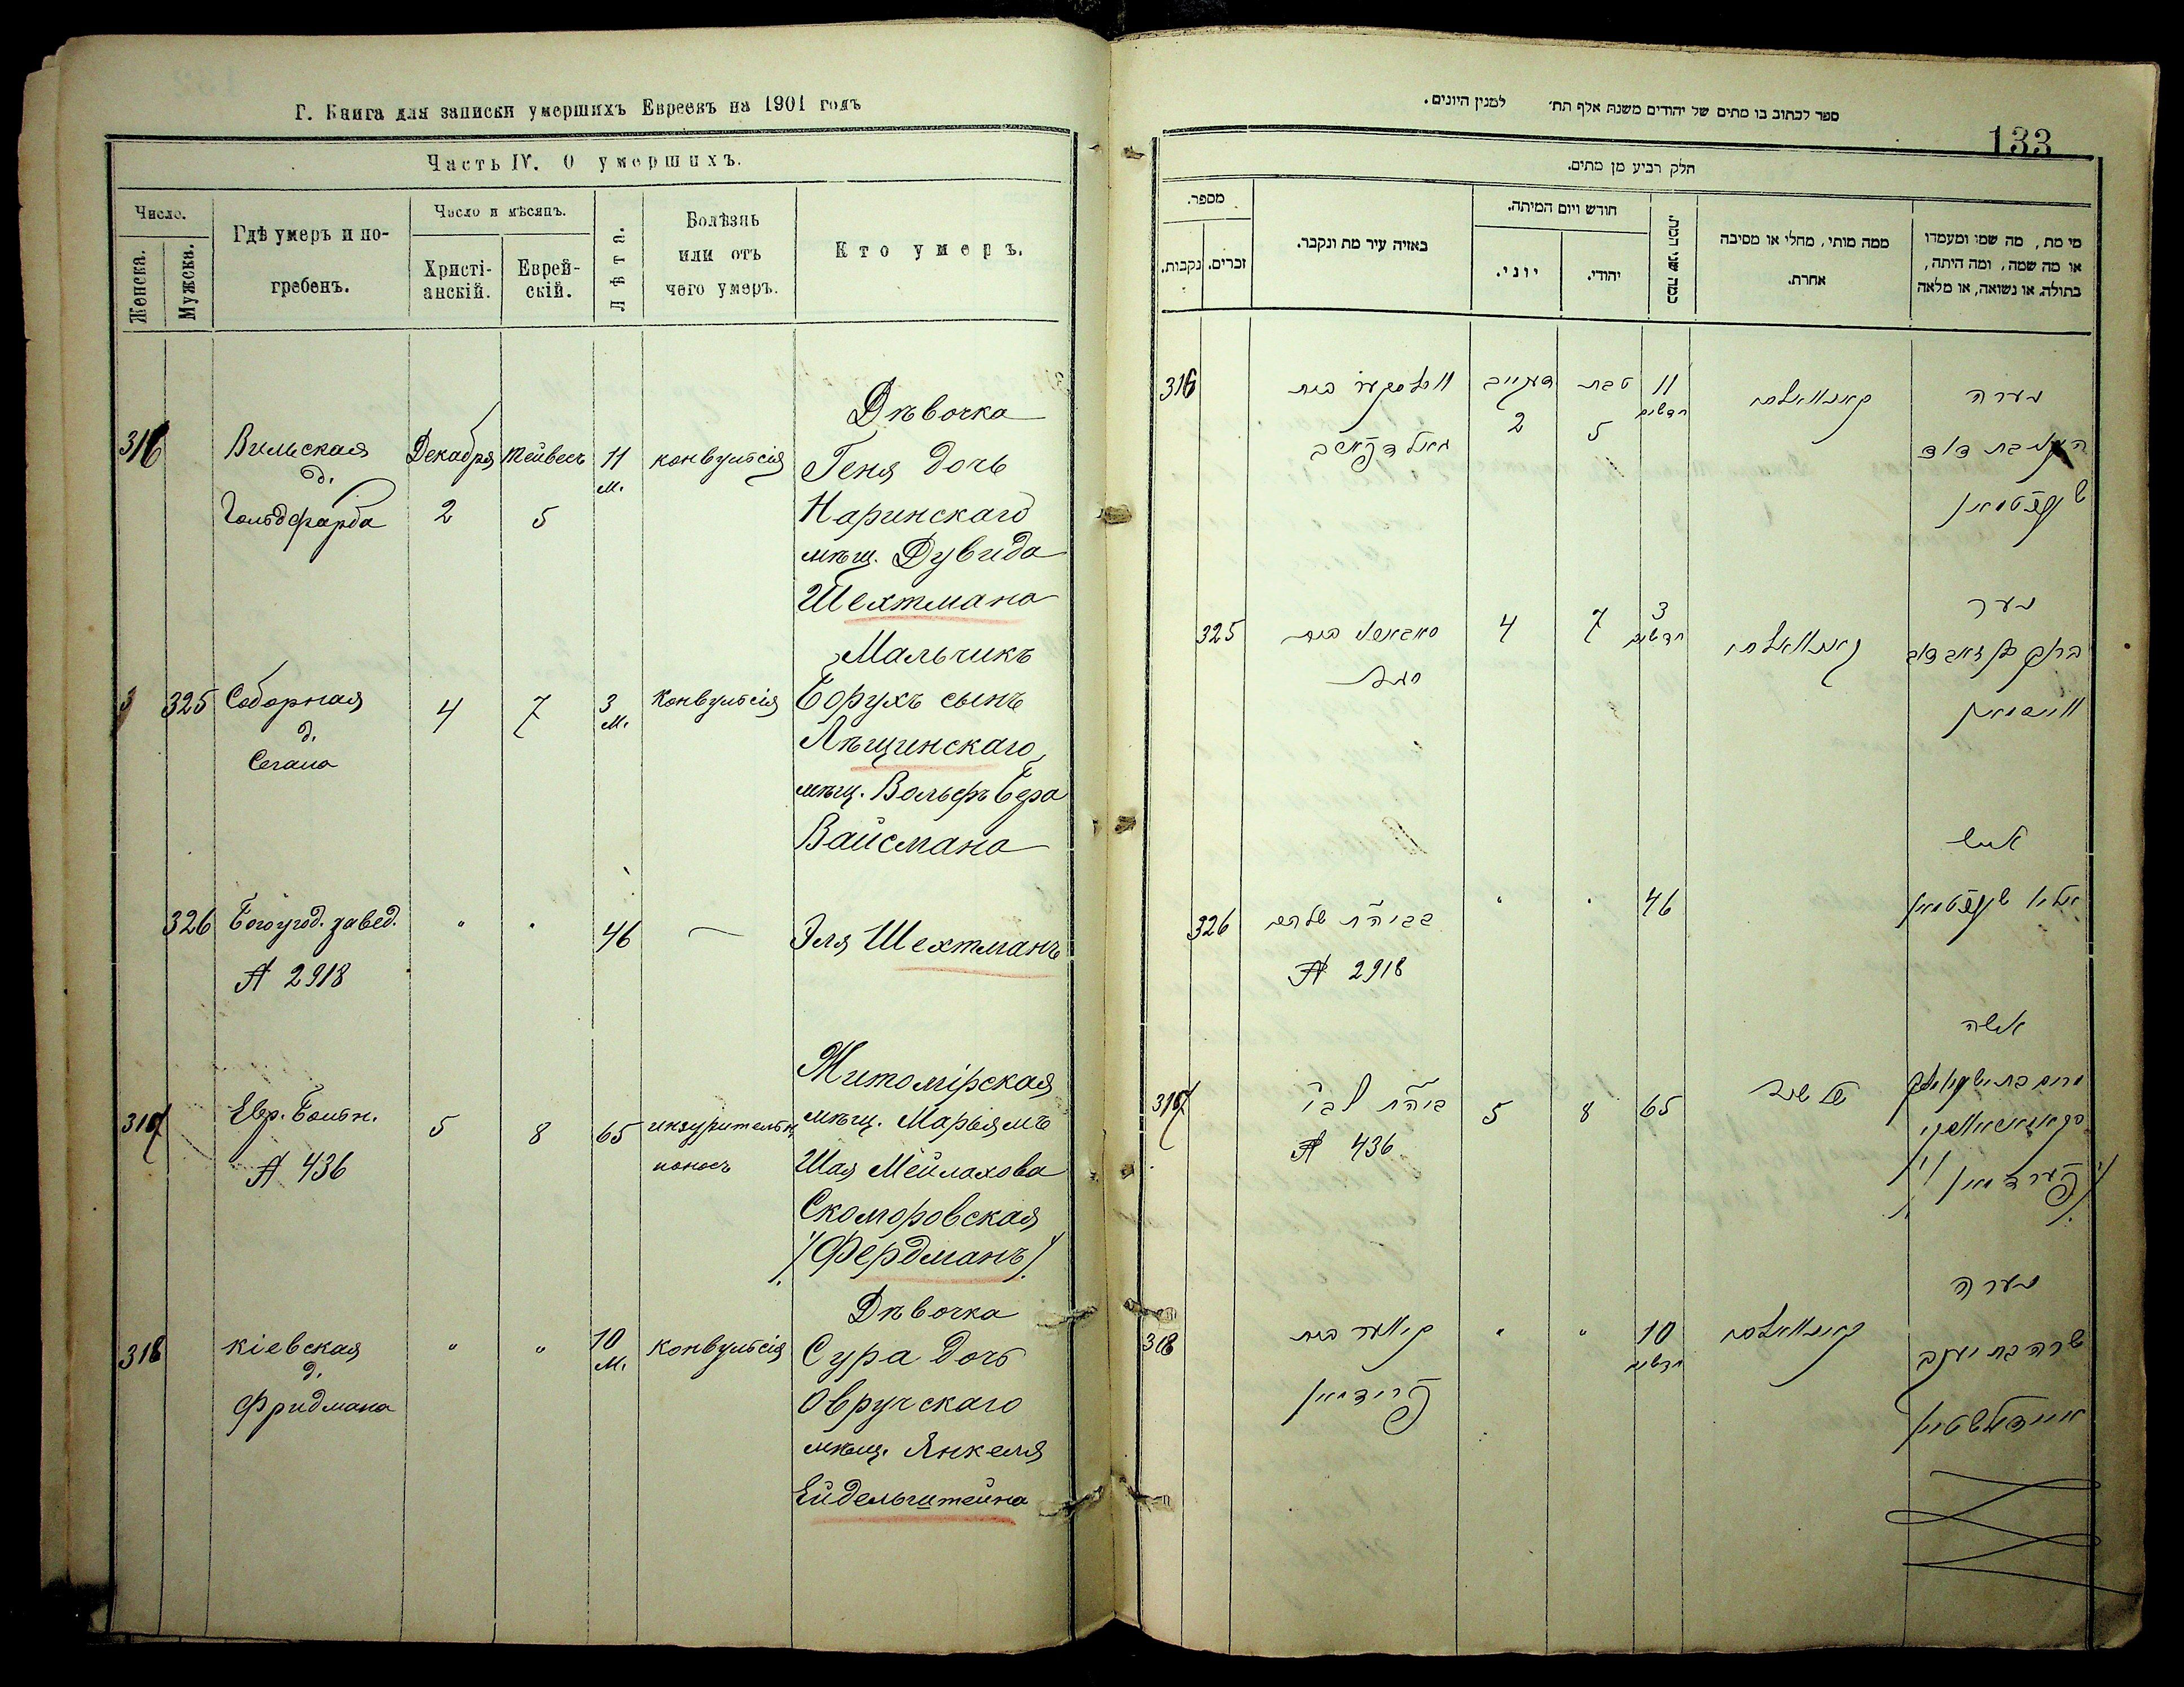 Г. Книга для записки умершихъ Евреевъ на 1901 годъ
Часть IV. О умершихъ.
Число.
Женска.
Мужска.
Гдѣ умеръ и по-
гребенъ.
Число и мѣсяцъ.
Христі-
анскій.
Еврей-
скій.
Лѣта.
Болѣзнь
или отъ
чего умеръ.
Кто умеръ.
316
Вильская
д.
Гольдфарба
Декабря
2
Тейвесъ
5
11
м.
конвульсія
Дѣвочка
Геня дочь
Наринскаго
мѣщ. Дувида
Шехтмана
325
Соборная
д.
Сегала
4
7
3
м.
Конвульсія
Мальчикъ
Борухъ сынъ
Лѣщинскаго
мѣщ. Вольфъ Бера
Вайсмана
326
Богоугод. завед.
№ 2918
"
"
46
—
Эля Шехтманъ
317
Евр. Больн.
№ 436
5
8
65
поносъ
Житомірская
мѣщ. Марьямъ
Шая Мейлахова
Скоморовская
/Фердманъ/
318
Кіевская
д.
Фридмана
"
"
10
м.
Конвульсія
Дѣвочка
Сура дочь
Овручскаго
мѣщ. Янкеля
Ейдельштейна
ספר לכתוב בו מתים של יהודים משנת אלף תת׳ למנין היונים.
133
חלק רביע מן מתים.
מספר.
נקבות.
זכרים.
באיזה עיר מת ונקבר.
חודש ויום המיתה.
יוני.
יהודי.
כמה שני המת.
ממה מותי, מחלי או מסיבה
אחרת.
מי מת, מה שמו ומעמדו
או מה שמה, ומה היתה,
בתולה או נשואה, או מלאה
316
2
טבת
5
11
חדשים
נערה
שעכטמאן
325
4
7
3
חדשים
נער
ווייסמאן
326
№ 2918
"
"
46
איש
אליי שעכטמאן
317
№ 436
5
8
65
שלשול
אשה
/פערדמאן/
318
קיעווער בית
פרידמאן
"
"
10
חדשים
נערה
שרה בת יעקב
איידעלשטיין